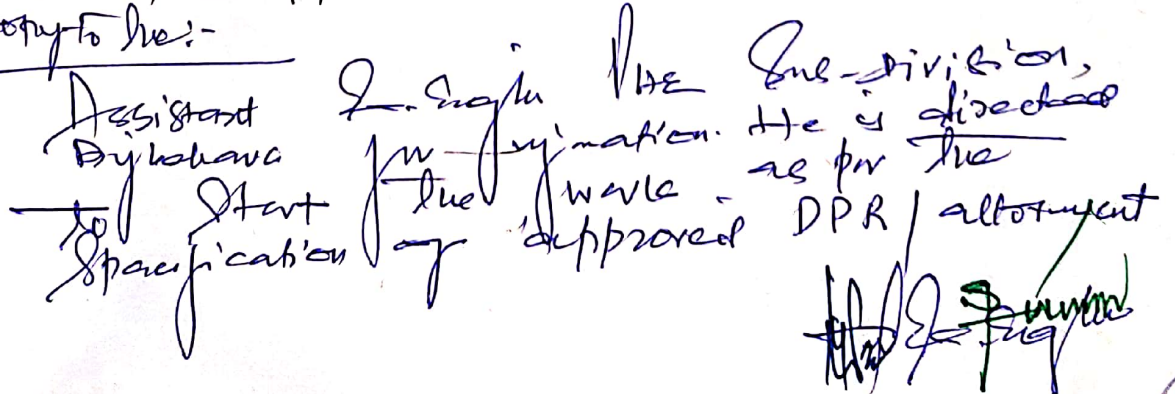 opy to the:-
Assistant Ex. Engin PHE Sub-Division,
Bijbehara for information. He is directed
to Start the work as per the
Specification of approved DPR / allotment